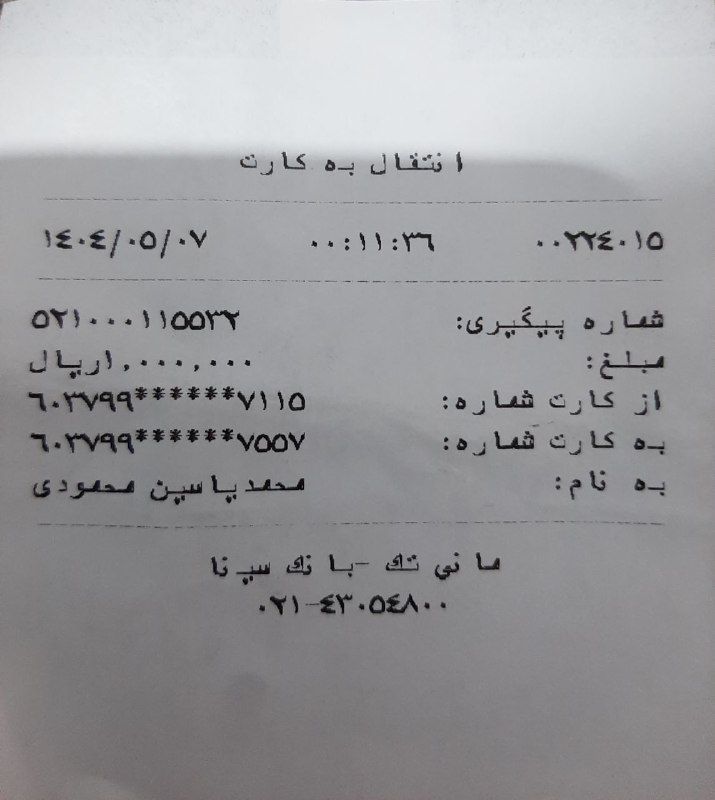 انتقال به کارت
۰۰۲۲٤۰۱۵ ۰۰:۱۱:۳٦ ۱٤۰٤/۰۵/۰۷
شماره پیگیری: ۵۲۱۰۰۰۱۱۵۵۳۲
مبلغ: ۱,۰۰۰,۰۰۰ریال
از کارت شماره: ٦۰۳۷۹۹******۷۱۱۵
به کارت شماره: ٦۰۳۷۹۹******۷۵۵۷
به نام: محمدیاسین محمودی
مانی تک -بانک سپنا
۰۲۱-٤۳۰۵٤۸۰۰